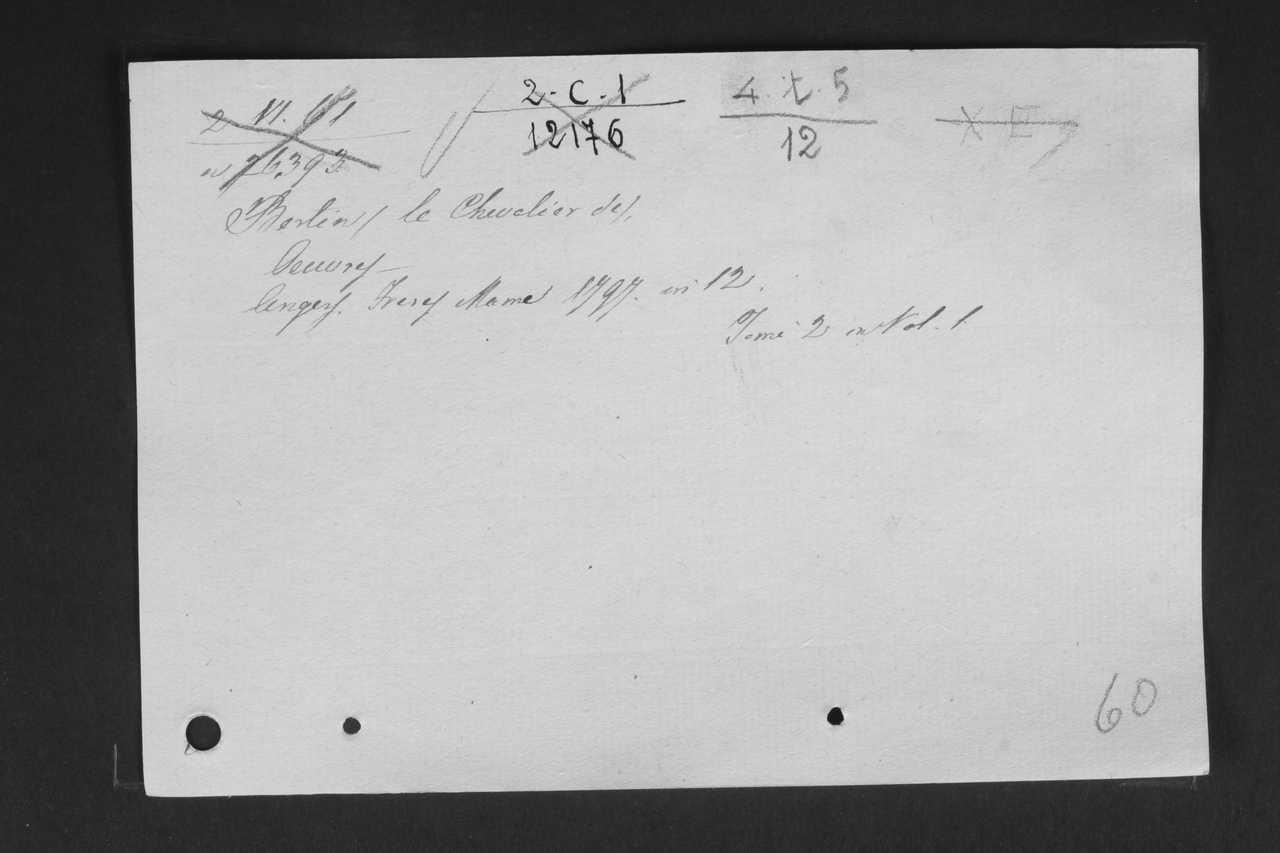 2-C-1
12176
4.t.5
12
X E
n 26393
Bertin (le Chevalier de).
Oeuvres
Angers. Freres Mame 1797. in 12.
Tomi 2 in Vol. 1.
60